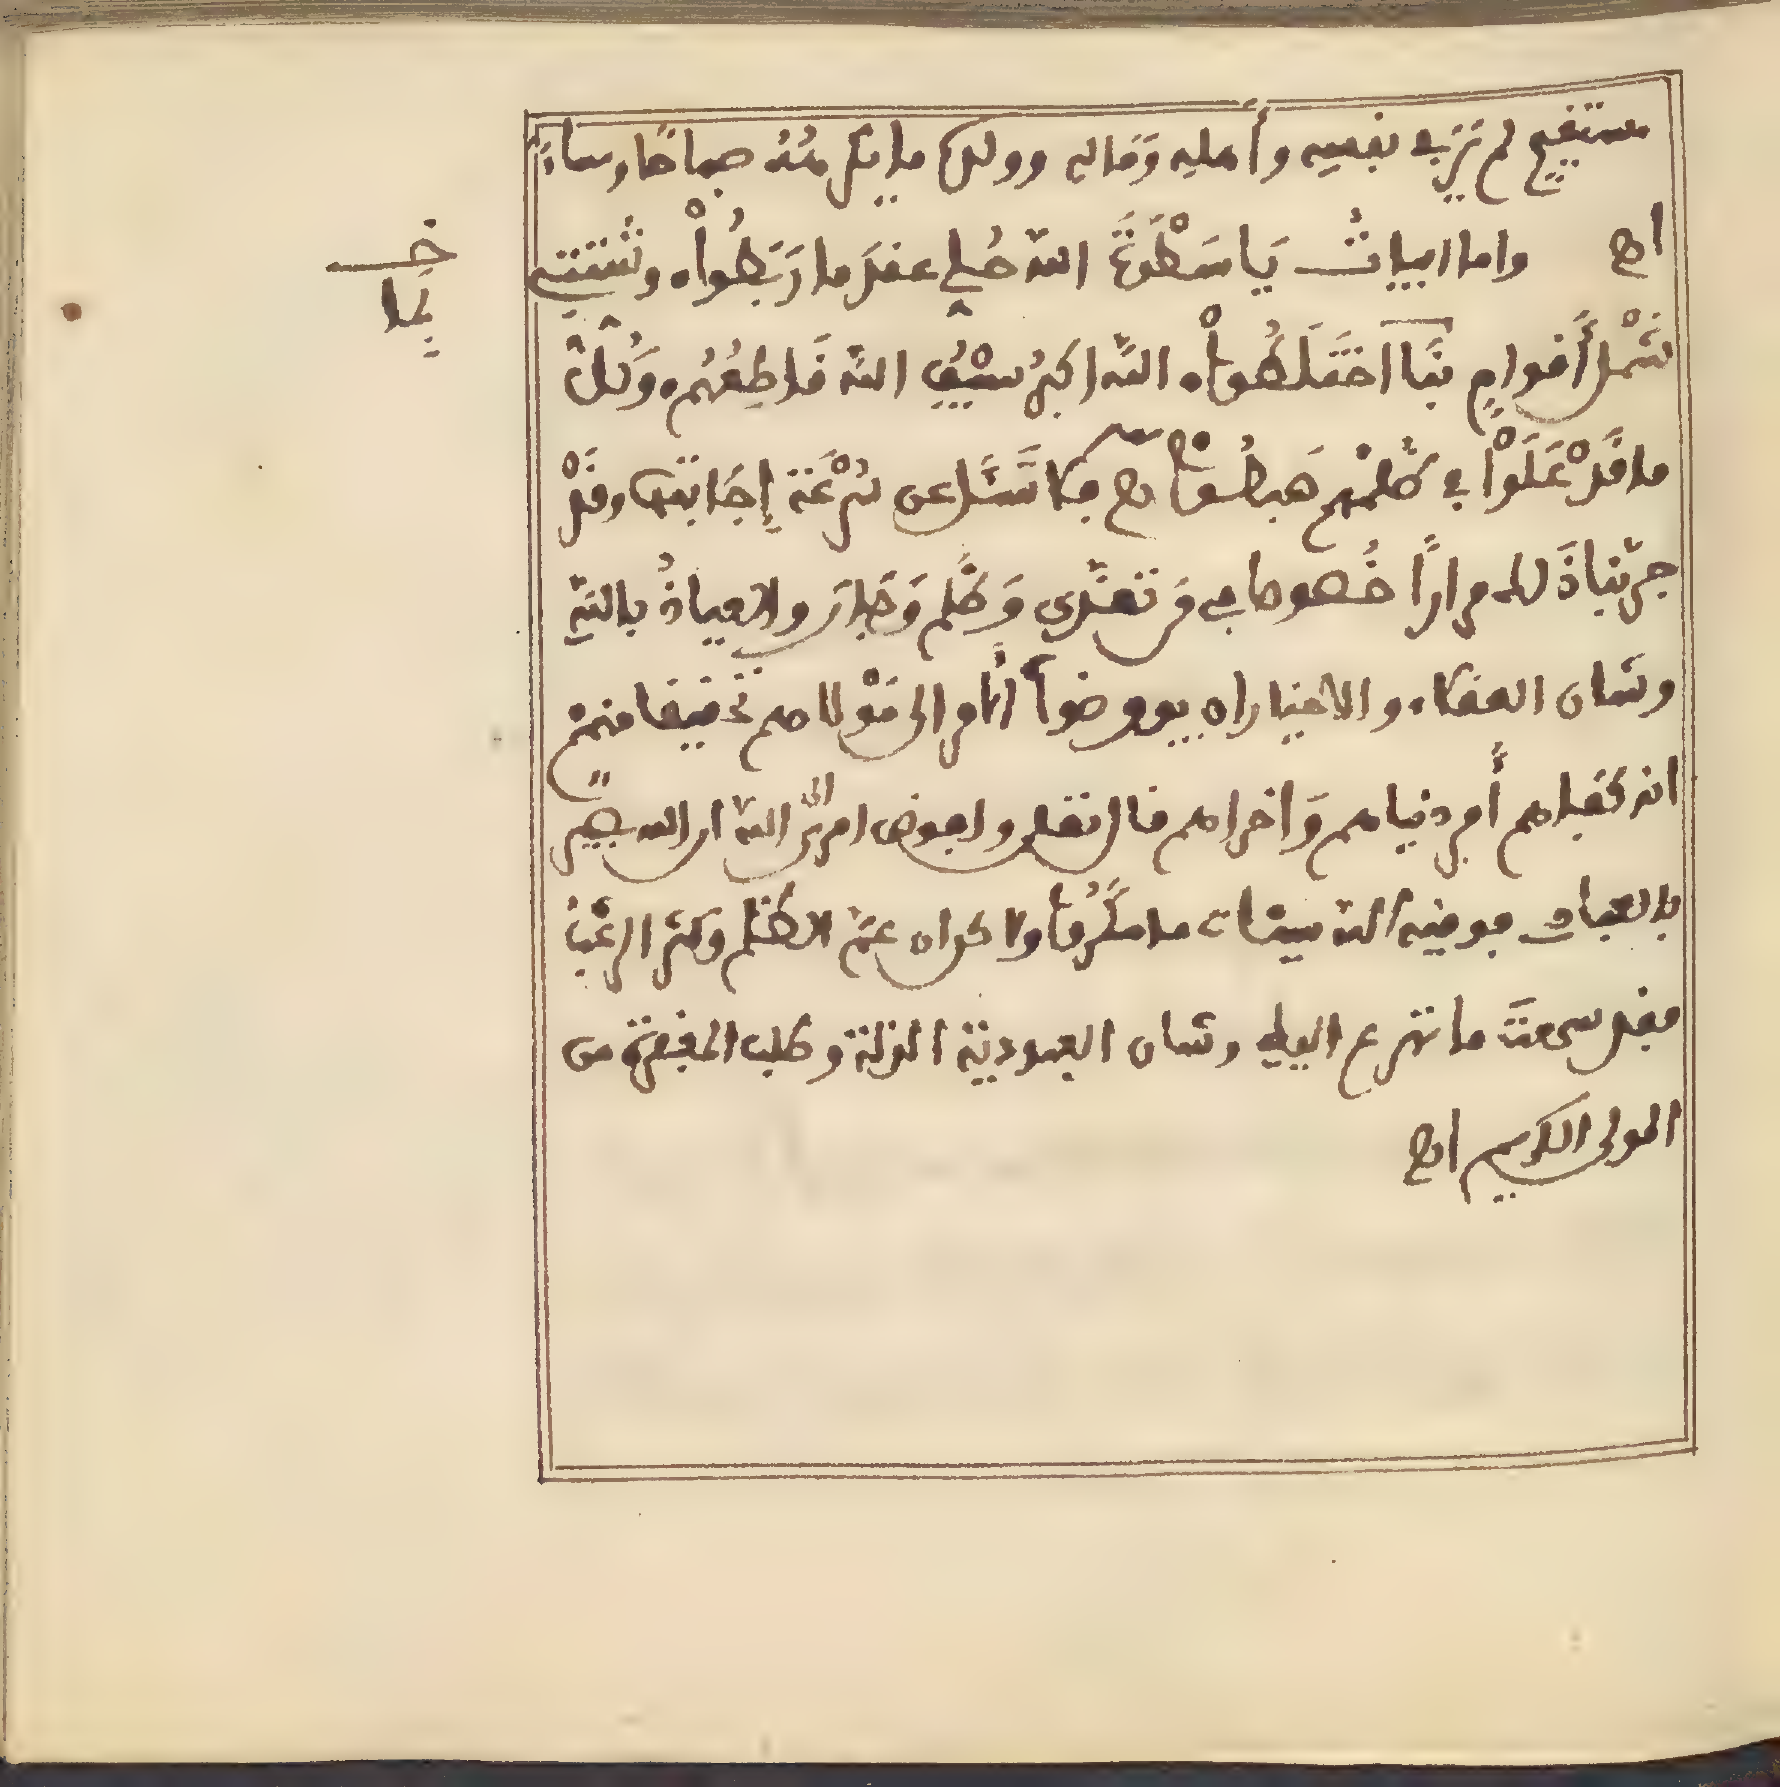 مستقيم لم تر في نفسه وأهله وَمَاله وولده ما يكره منه صباحًا ومساءً
اهـ واما ابيات يَا سَطْوَةَ اللّه حُلِّي عقدَ ما رَبَطُواْ وشَتِّتِي
شَمْلَ أَقوامٍ بِنَا اختَلَطُواْ اللّه اكبرُ سَيْفُ اللّه قَاطِعُهُم وَكُلَّ
ما قَدْ عَلَوْا في ظلمهم هَبَطُواْ اهـ فلا تَسْئَل عن سُرْعَة إِجَابَتِهَا وقَدْ
جرّبنا ذَلك مرارًا خُصُوصا في من تعدّى وَظَلم وَجَار والعياذُ باللّه
وشان العقلاء والاخيار ان يفوضواْ الأَمر الى مَوْلاهم تخفيفا منهم
انه كفاهم أمر دنياهم وَأخراهم قال تعلى وافوض امري الى اللّه ان الله بصير
بالعباد فوقيه اللّه سيئات ما مكرُوا ولاكن ان عمّ الظلم وكثر الرعبُ
فقد سمعت ما تهرع اليه وشان العبودية الذلة وطلب المغفرة من
المولى الكريم اهـ
خـ
بِمَا